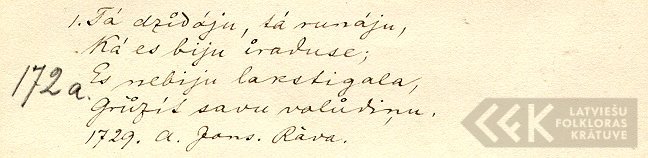 1. Tá dzi̊dáju, tá runáju,
Ká es biju i̊raduse;
172a. Es nebiju lakstigala,
Grůzít savu volůdiņu.
1729. A. Jons. Rāva.
LATVIEŠU
FOLKLORAS
KRĀTUVE